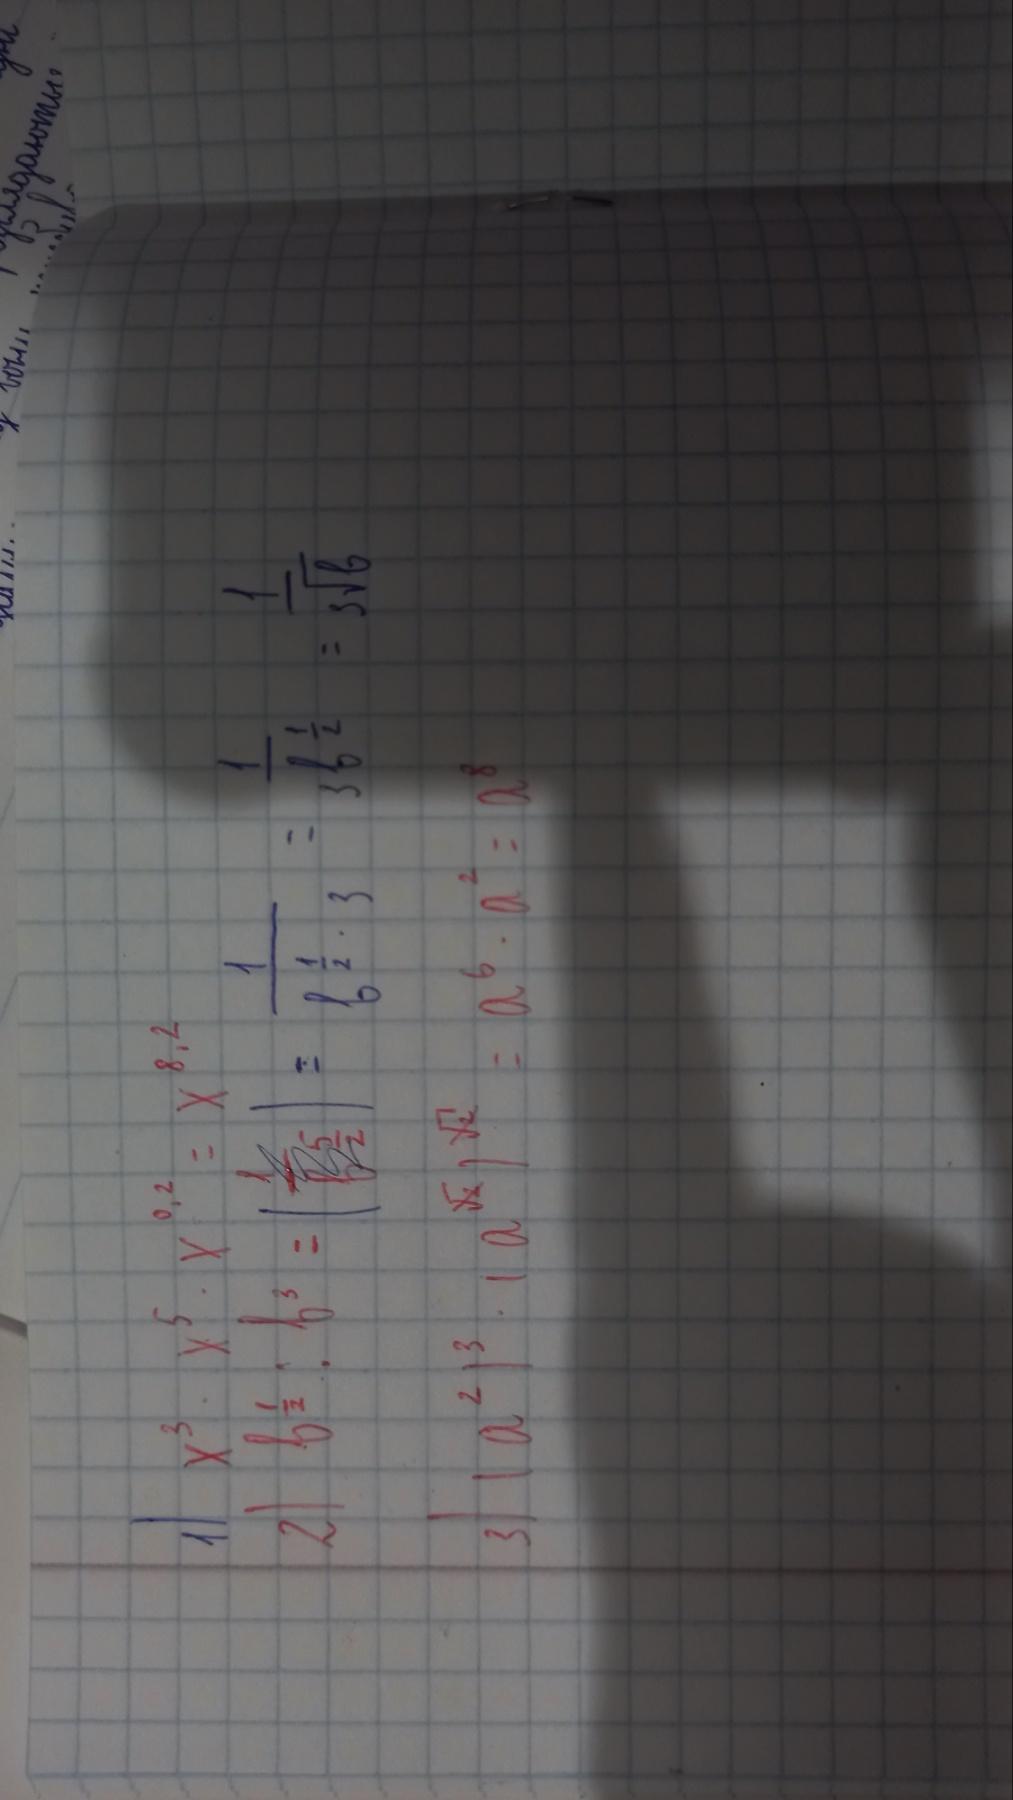 1) x³ · x⁵ · x^0,2 = x^8,2
2) b^(1/2) : b³ = ( ) = 1/(b^(1/2) · 3) = 1/(3b^(1/2)) = 1/(3√b)
3) (a²)³ · (a^√2)^√2 = a⁶ · a² = a⁸